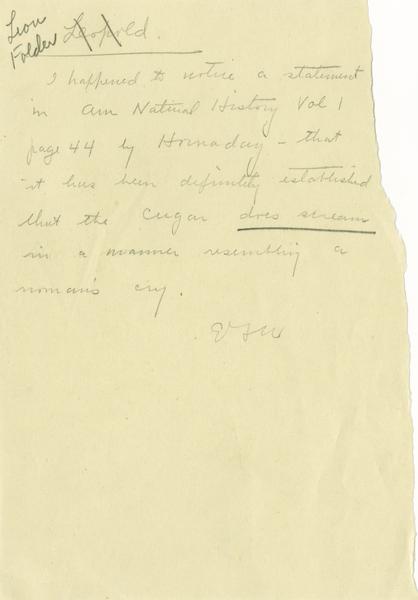 Leon
Folder
Leopold.
I happened to notice a statement
in Am Natural History Vol 1
page 44 by Hornaday - that
it has been definitely established
that the Cugar does scream
in a manner resembling a
woman's cry.